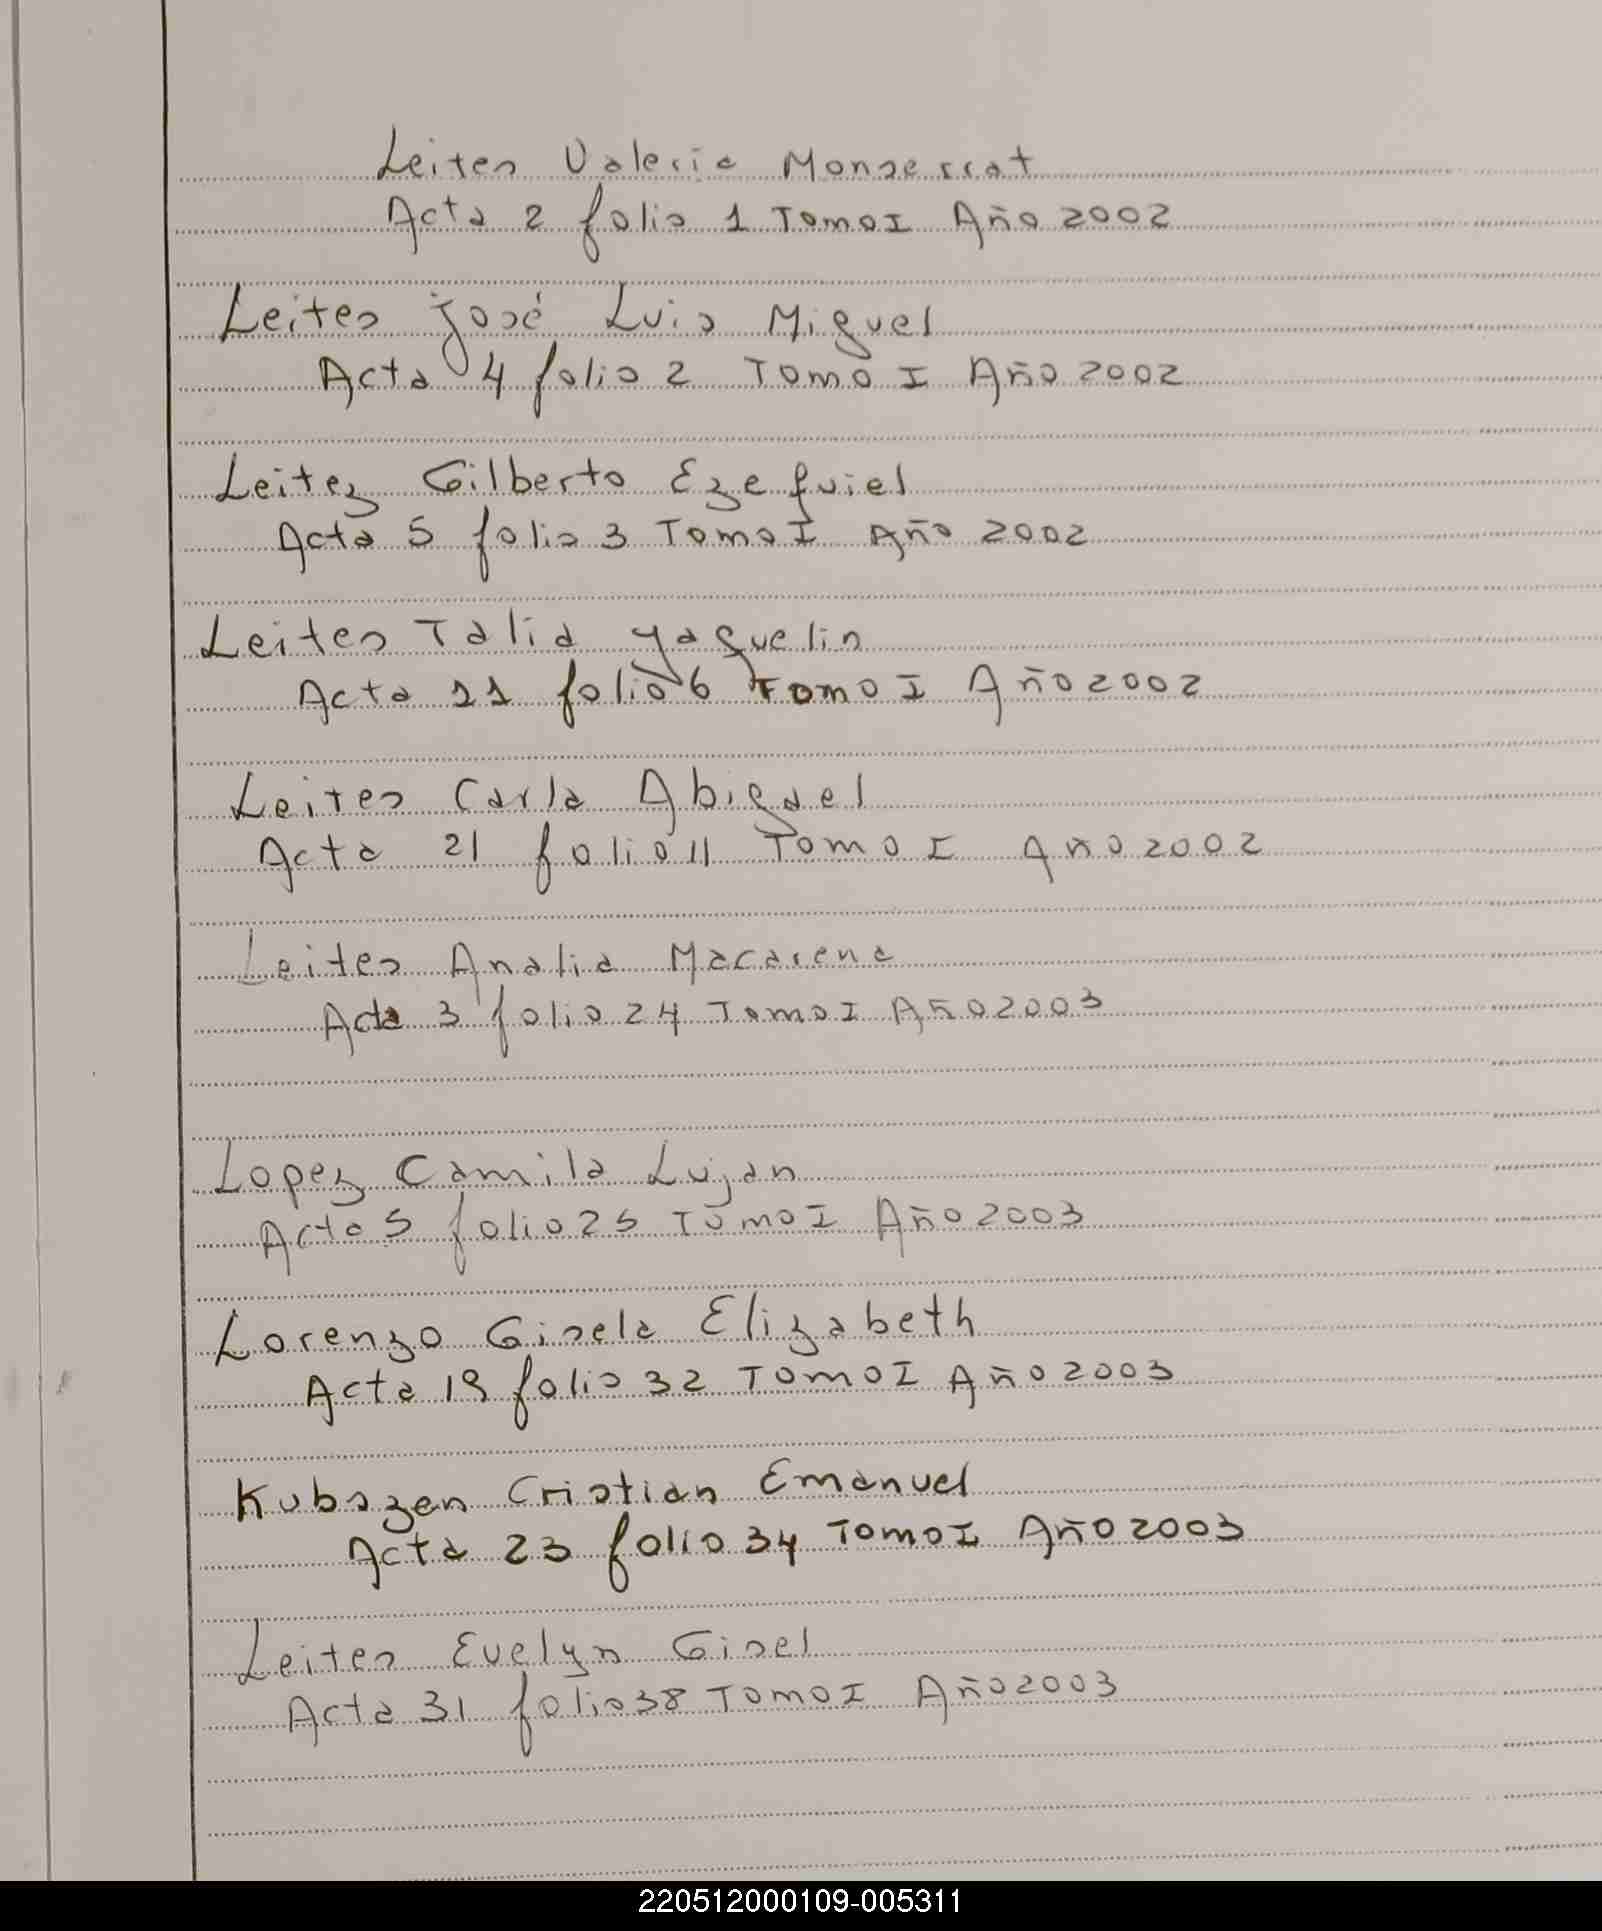 Leites Valeria Monserrat
Acta 2 folio 1 Tomo I Año 2002
Leites José Luis Miguel
Acta 4 folio 2 Tomo I Año 2002
Leitez Gilberto Ezequiel
Acta 5 folio 3 Tomo I Año 2002
Leites Talia Yaquelin
Acta 11 folio 6 Tomo I Año 2002
Leites Carla Abigael
Acta 21 folio 11 Tomo I Año 2002
Leites Analia Macarena
Acta 3 folio 24 Tomo I Año 2003
Lopez Camila Lujan
Acta 5 folio 25 Tomo I Año 2003
Lorenzo Gisela Elizabeth
Acta 19 folio 32 Tomo I Año 2003
Kubszen Cristian Emanuel
Acta 23 folio 34 Tomo I Año 2003
Leites Evelyn Gisel
Acta 31 folio 38 Tomo I Año 2003
220512000109-005311